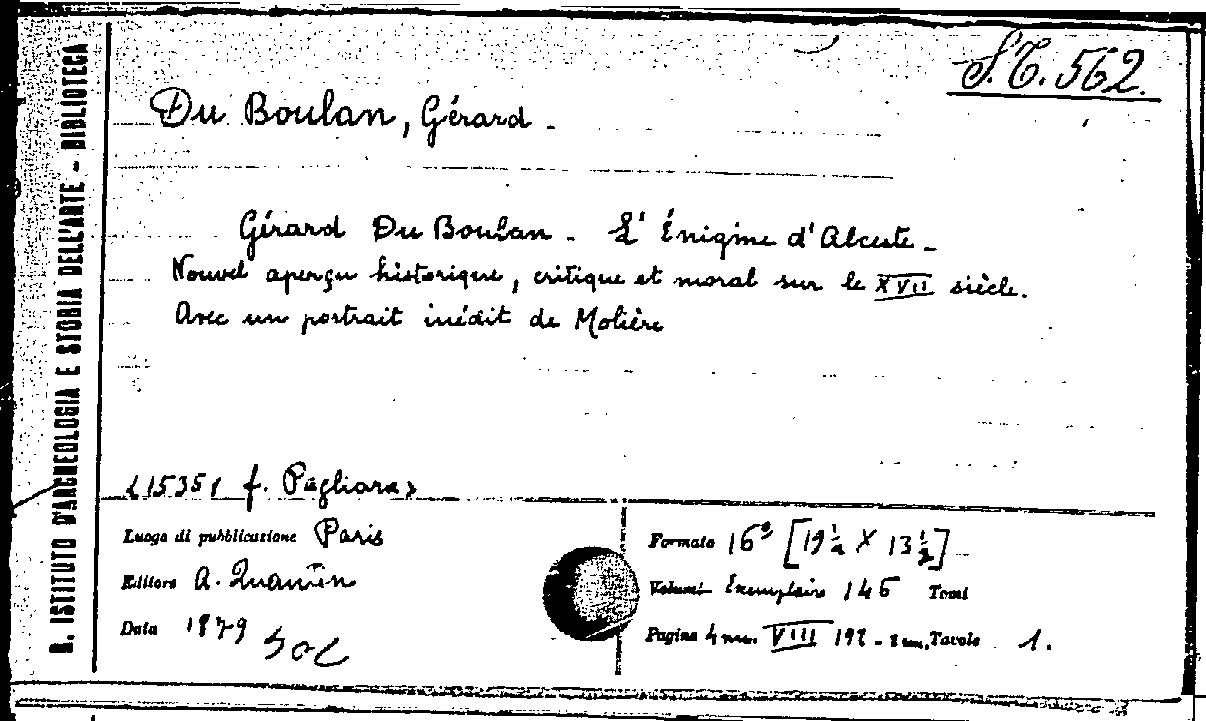 S.T. 562.
Du Boulan, Gérard -
Gérard Du Boulan - L'Énigme d'Alceste -
Nouvel aperçu historique, critique et moral sur le XVII siècle.
Avec un portrait inédit de Molière
R. ISTITUTO D'ARCHEOLOGIA E STORIA DELL'ARTE - BIBLIOTECA
f. Pagliara>
Luogo di pubblicazione Paris
Editore A. Quantin
Data 1879
Formato 16° [19 1/2 X 13 1/2]
Volumi Exemplaire 146 Tomi
Pagine 4 nn. VIII 192 - Tavole 1.